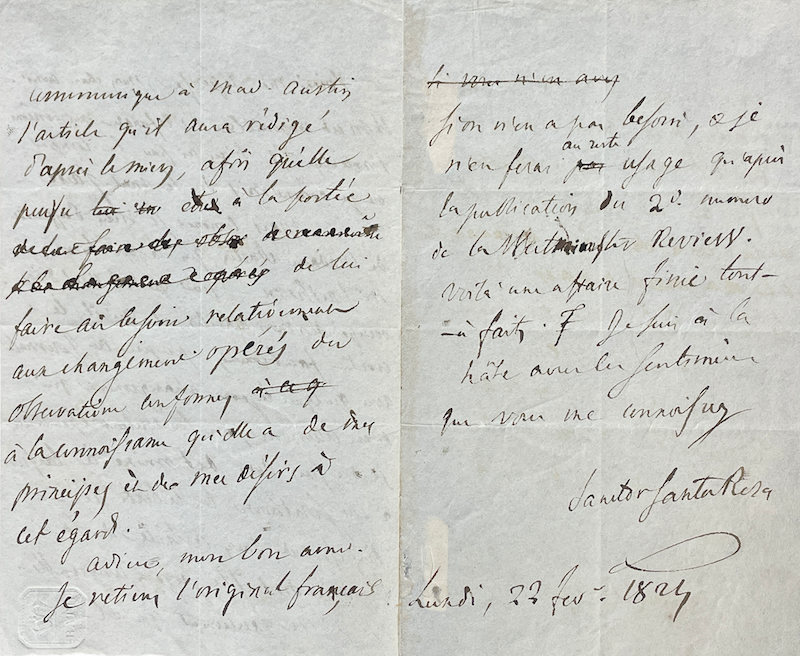 communique à mad. austin
l'article qu'il aura rédigé
d'après le mien, afin qu'elle
puisse être à la portée
de lui
faire au besoin relativement
aux changemens opérés des
observations conformes
à la connoissance qu'elle a de mes
principes et de mes désirs à
cet égard.
adieu, mon bon ami.
Je retiens l'original français
si vous n'en avez
si on n'en a pas besoin, & je
n'en ferai au reste usage qu'après
la publication du 2d. numero
de la Westminster Review.
voilà une affaire finie tout-
-à-fait. Je suis à la
hâte avec les sentimens
que vous me connoissez
Santor Santa Rosa
Lundi, 23 fev. 1824